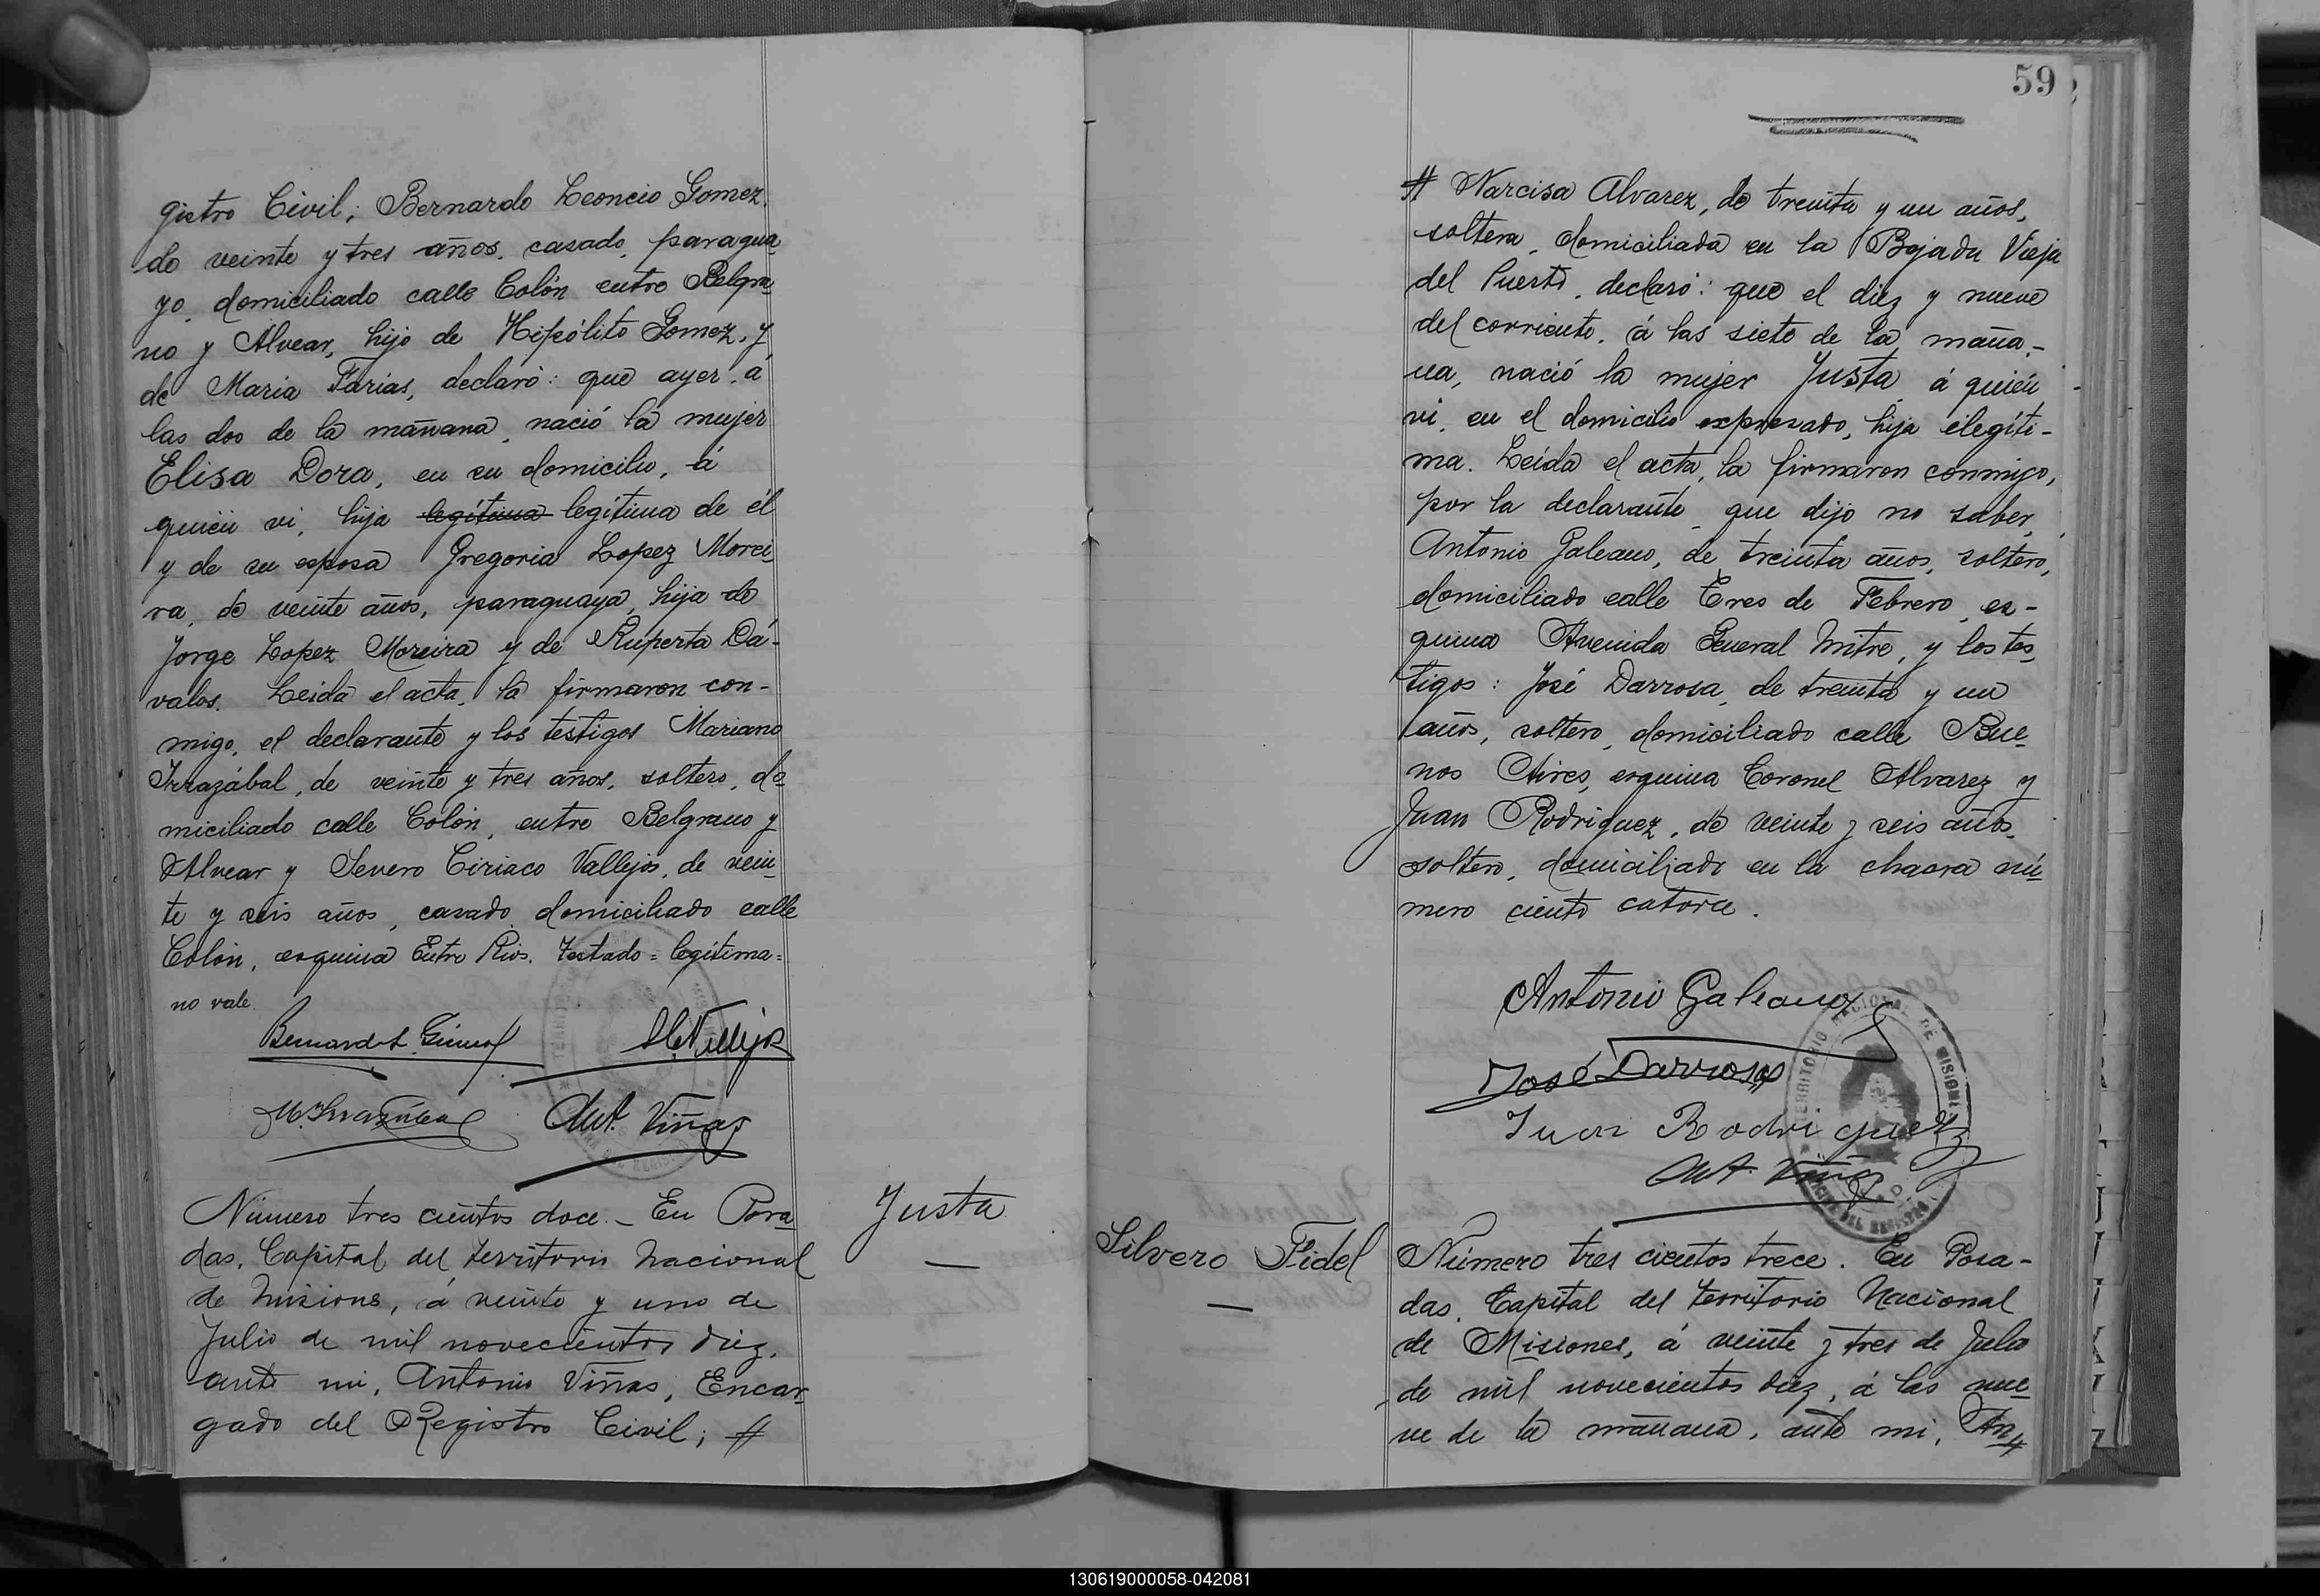 gistro Civil; Bernardo Leoncio Gomez,
de veinte y tres años, casado, paragua
yo, domiciliado calle Colón entre Belgra
no y Alvear, hijo de Hipólito Gomez, y
de Maria Farias, declaró: que ayer, á
las dos de la mañana, nació la mujer
Elisa Dora, en su domicilio, á
quien vi, hija legítima legítima de él
y de su esposa Gregoria Lopez Morei
ra, de veinte años, paraguaya, hija de
Jorge Lopez Moreira y de Ruperta Dá-
valos. Leida el acta, la firmaron con-
migo, el declarante y los testigos Mariano
Irrazábal, de veinte y tres años, soltero, do
miciliado calle Colón, entre Belgrano y
Alvear y Severo Ciriaco Vallejos, de vein
te y seis años, casado, domiciliado calle
Colón, esquina Entre Rios. Testado = legítima =
no vale.
Vallejos
Ant. Viñas
Número tres cientos doce. - En Posa
das, Capital del territorio Nacional
de Misiones, á veinte y uno de
Julio de mil novecientos diez,
ante mi, Antonio Viñas, Encar
gado del Registro Civil; #
Justa
59
# Narcisa Alvarez, de treinta y un años,
soltera, domiciliada en la Bajada Vieja
del Puerto, declaró: que el diez y nueve
del corriente, á las siete de la maña-
na, nació la mujer Justa á quién
vi, en el domicilio expresado, hija ilegíti-
ma. Leida el acta, la firmaron conmigo,
por la declarante que dijo no saber,
Antonio Galeano, de treinta años, soltero,
domiciliado calle Tres de Febrero, es-
quina Avenida General Mitre, y los tes
tigos: José Darrosa, de treinta y un
años, soltero, domiciliado calle Bue
nos Aires, esquina Coronel Alvarez y
Juan Rodriguez, de veinte y seis años,
soltero, domiciliado en la chacra nú
mero ciento catorce.
Antonio Galeano
José Darrosa
Juan Rodriguez
Ant. Viñas
TERRITORIO NACIONAL DE MISIONES
Silvero Fidel
Número tres cientos trece. En Posa-
das, Capital del territorio Nacional
de Misiones, á veinte y tres de Julio
de mil novecientos diez, á las nue
ve de la mañana, ante mi, An
130619000058-042081